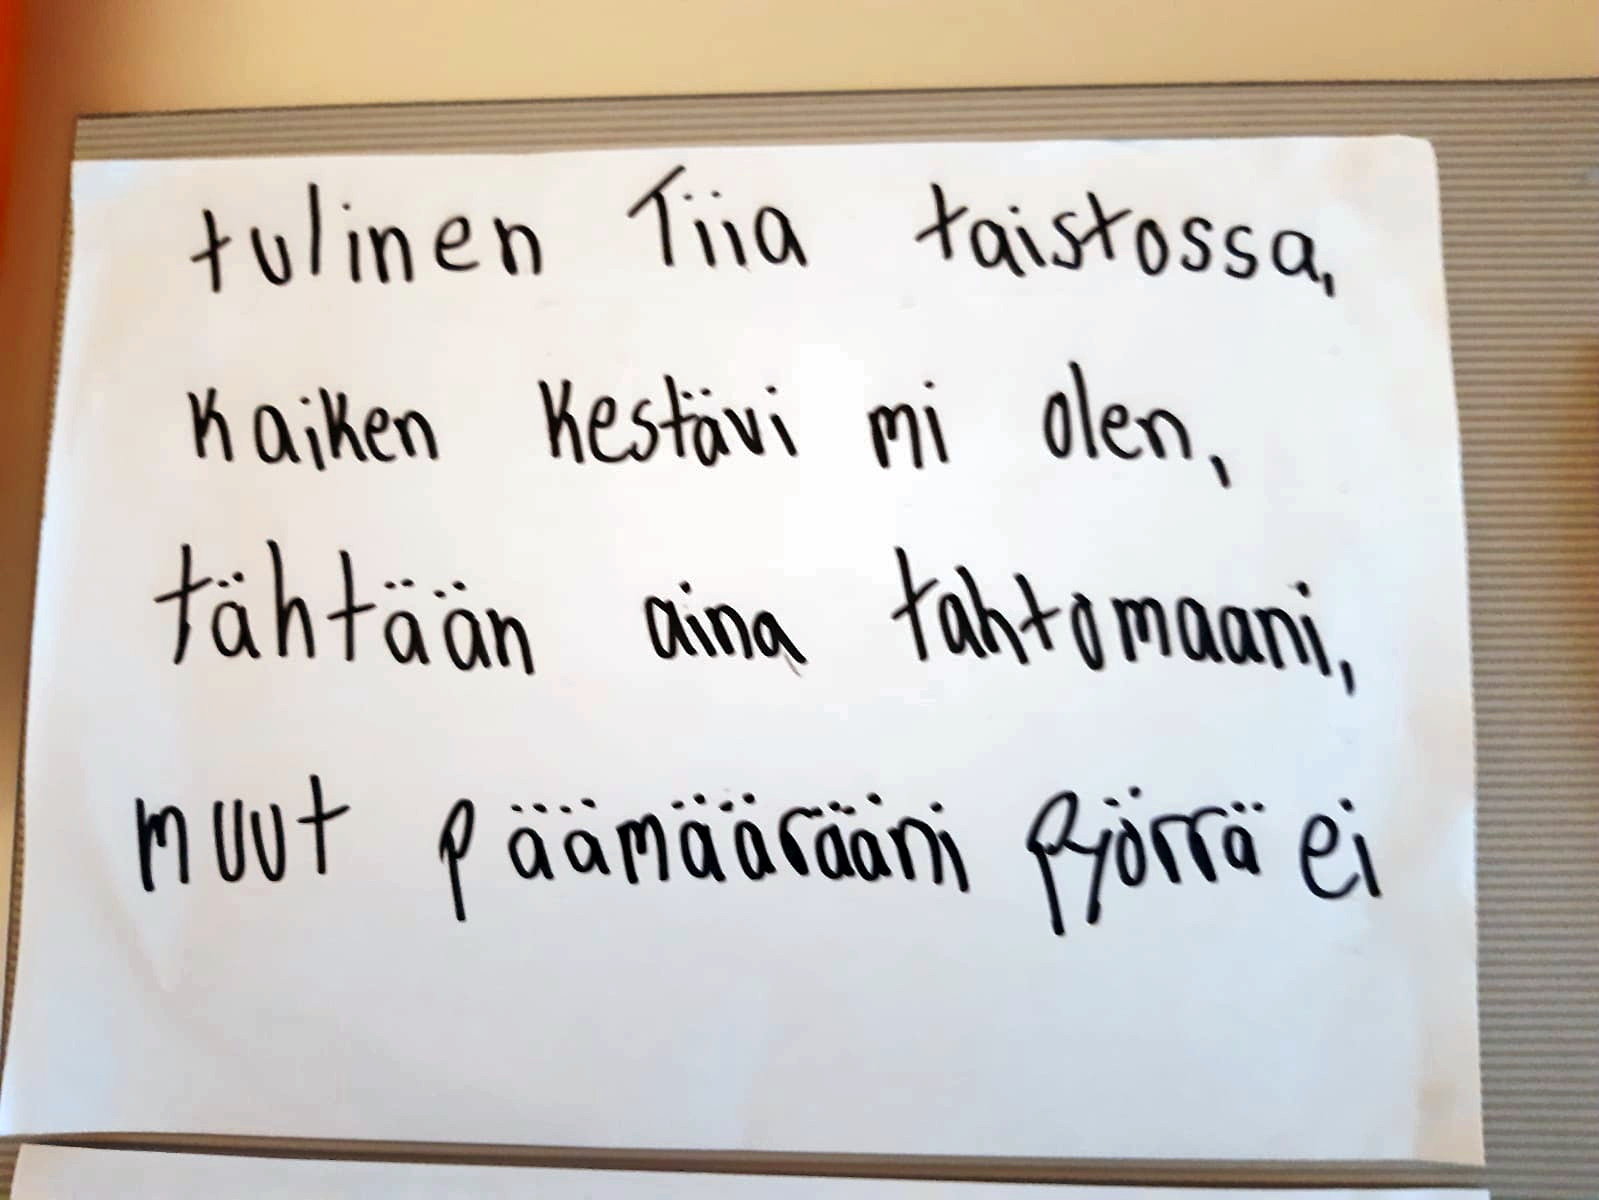 tulinen Tiia taistossa,
kaiken kestävi mi olen,
tähtään aina tahtomaani,
muut päämäärääni pyörrä ei